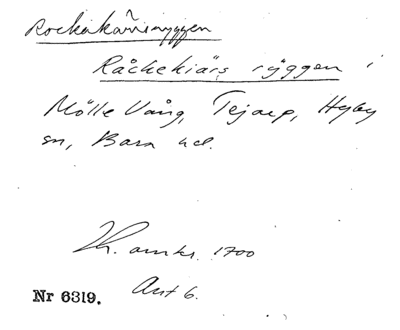 Rockakärrsryggen
Råckekiärs ryggen i
Mölle Vång, Tejarp, Hyby
sn, Bara hd.
Lh. amkr. 1700
Akt 6.
Nr 6319.